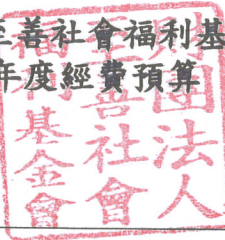 至善社會福利基
年度經費預算
財團法人
至善社會
福利基金會